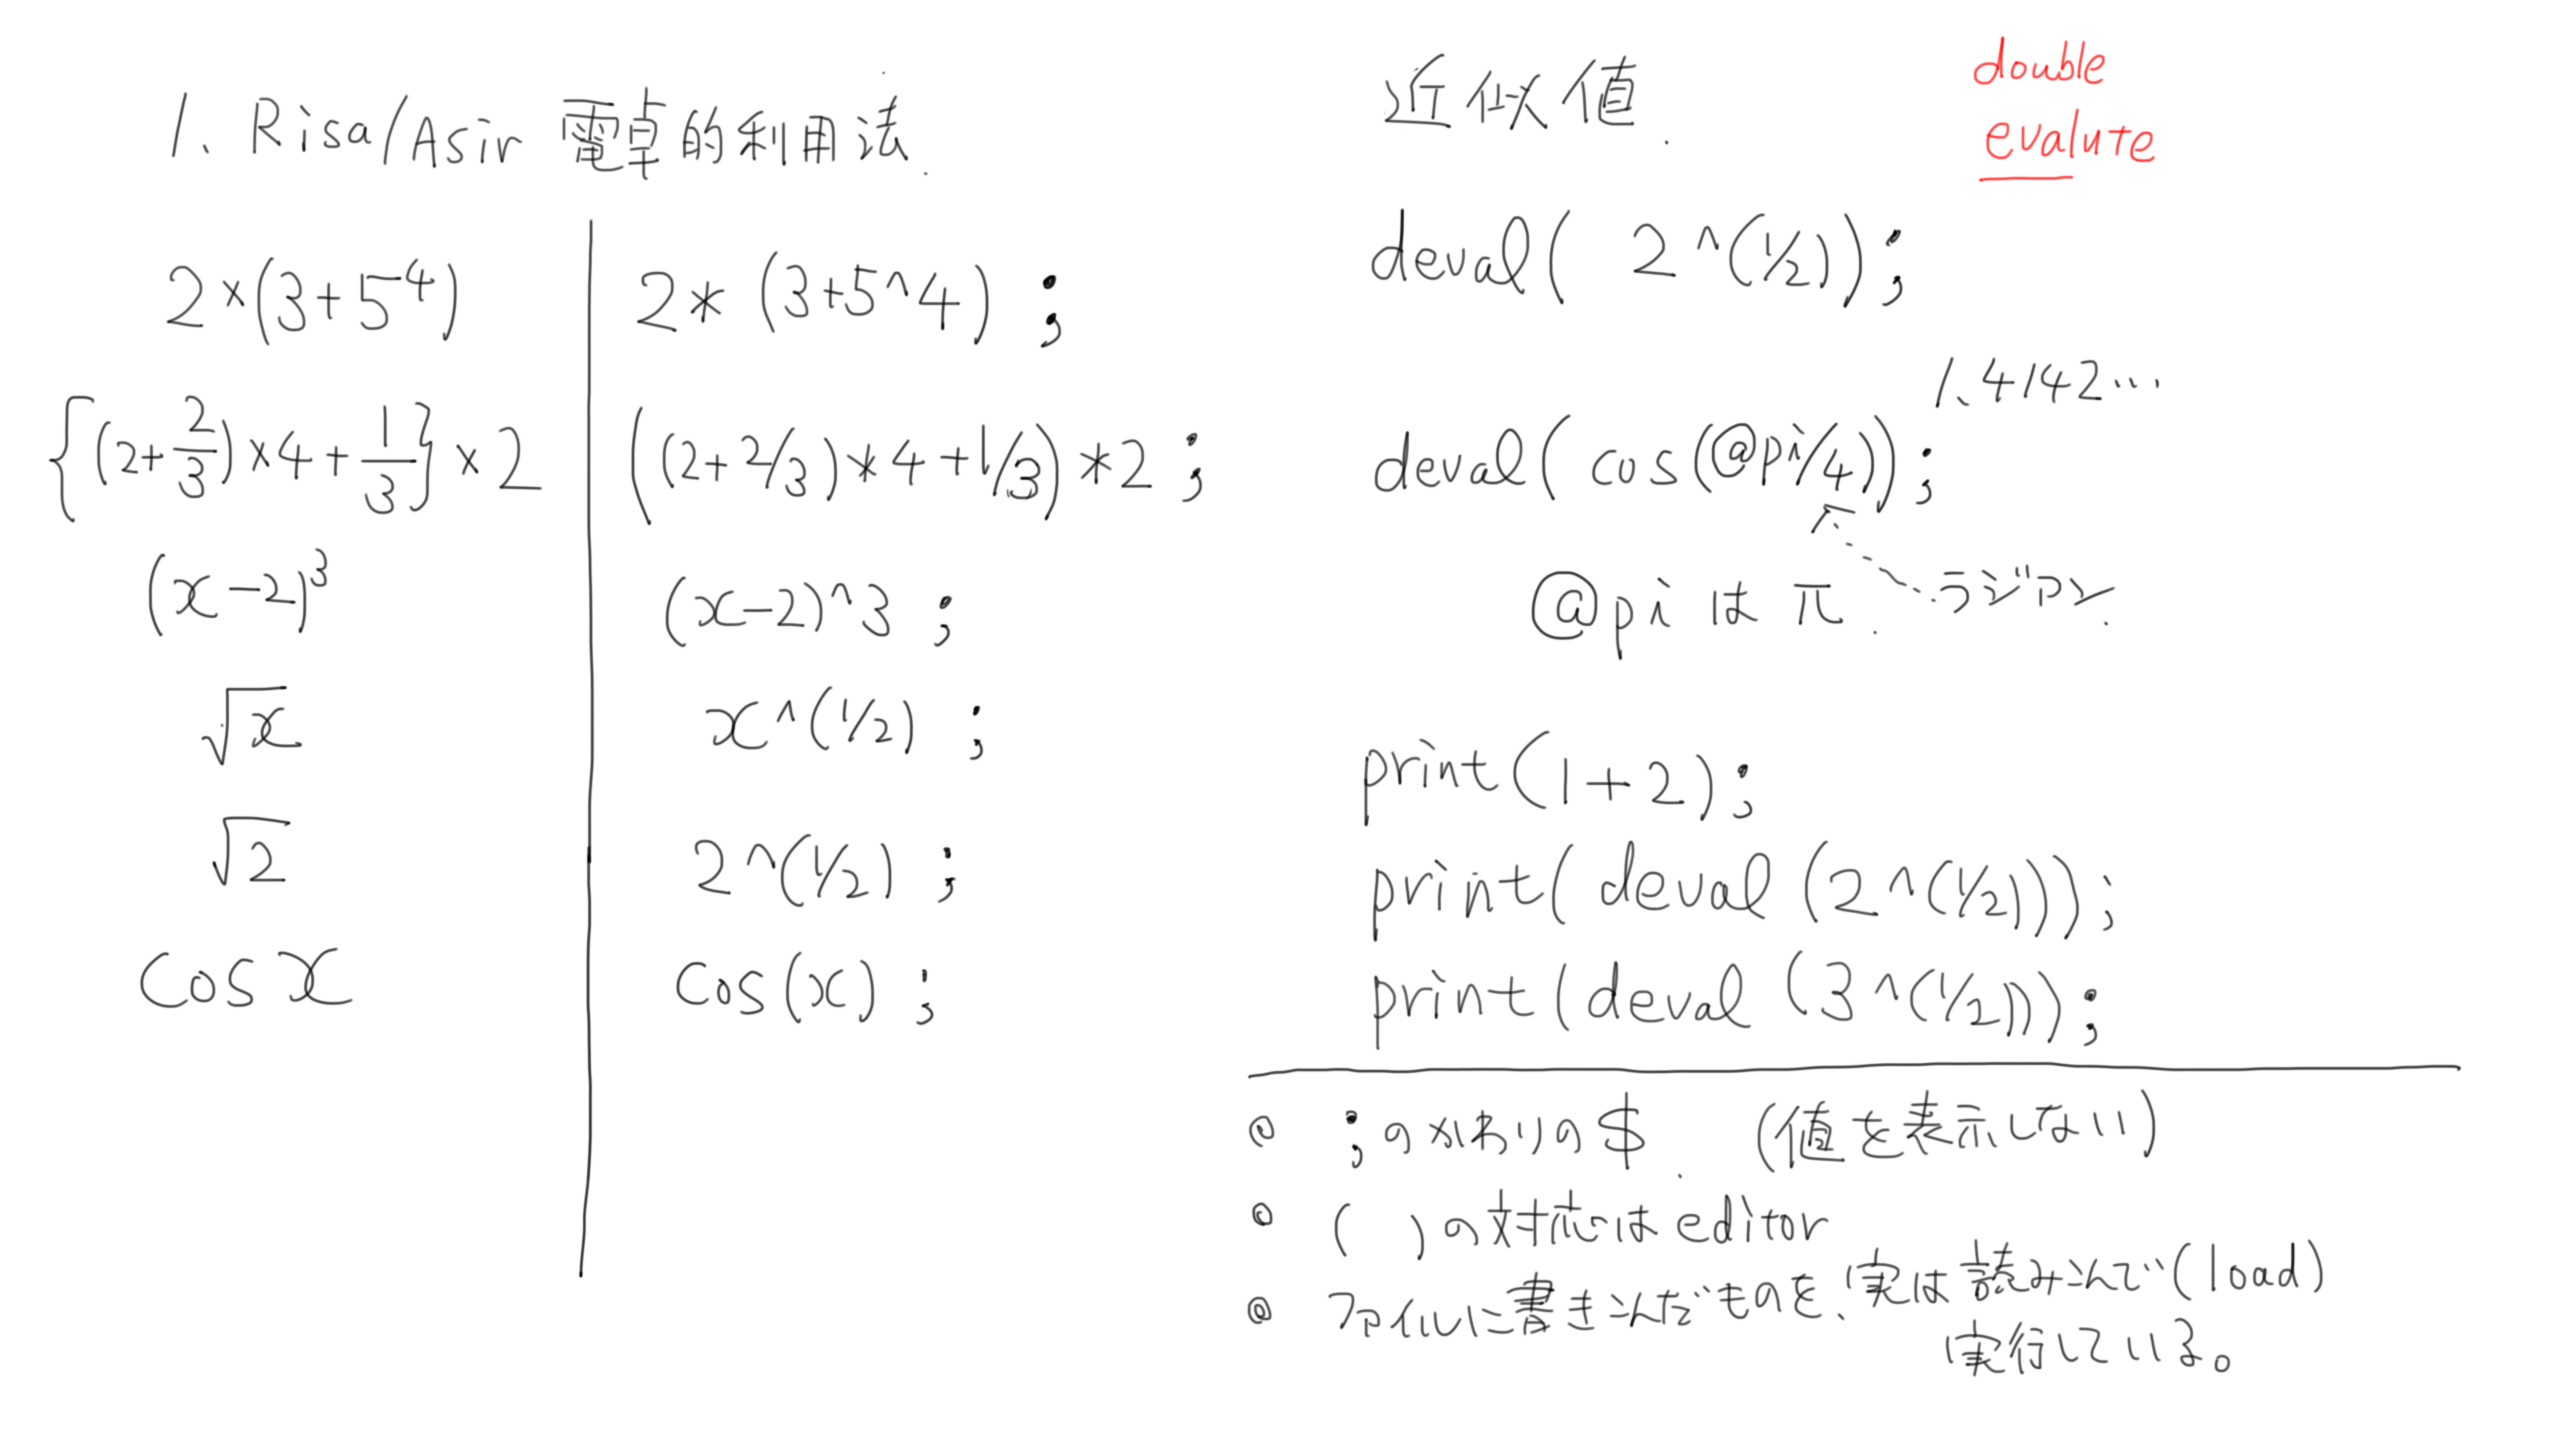 1. Risa/Asir 電卓的利用法.
2×(3+5⁴)
2* (3+5^4) ;
{(2+2/3)×4+1/3}×2
((2+2/3)*4+1/3)*2 ;
(x-2)³
(x-2)^3 ;
√x
x^(1/2) ;
√2
2^(1/2) ;
cos x
cos(x) ;
近似値.
double
evalute
deval( 2^(1/2));
1.4142…
deval( cos(@pi/4));
@pi は π.
ラジアン.
print(1+2);
print( deval (2^(1/2)));
print( deval (3^(1/2)));
◎ ;のかわりの $. (値を表示しない)
◎ ( )の対応は editor
◎ ファイルに書きこんだものを、実は読みこんで(load)
実行している。